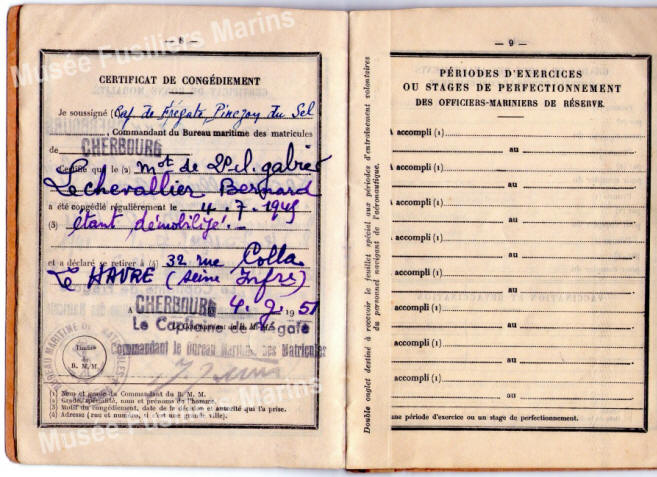 — 8 —
CERTIFICAT DE CONGÉDIEMENT
Je soussigné (1) Cap. de Frégate Pinczon du Sel
, Commandant du Bureau maritime des matricules
de CHERBOURG
Certifie que le (2) mot de 2e cl. gabier
Lechevallier Bernard
a été congédié régulièrement le 4.7.1945
(3) étant démobilisé.-
et a déclaré se retirer à (4) 32 rue Colla
Le HAVRE (Seine Infre)
A CHERBOURG 4.9.1951
Le Capitaine de Frégate
Commandant le Bureau Maritime des Matricules
Timbre
du
B. M. M.
BUREAU MARITIME DES MATRICULES
(1) Nom et grade du Commandant du B. M. M.
(2) Grade, spécialité, nom et prénoms de l'homme.
(3) Motif du congédiement, date de la décision et autorité qui l'a prise.
(4) Adresse (rue et numéro, si c'est une grande ville).
Musée Fusiliers Marins
Musée Fusiliers Marins
Double onglet destiné à recevoir le feuillet spécial aux périodes d'entraînement volontaires
du personnel navigant de l'aéronautique.
— 9 —
PÉRIODES D'EXERCICES
OU STAGES DE PERFECTIONNEMENT
DES OFFICIERS-MARINIERS DE RÉSERVE.
A accompli (1)
au
A accompli (1)
au
A accompli (1)
au
A accompli (1)
au
A accompli (1)
au
A accompli (1)
au
A accompli (1)
au
accompli (1)
au
une période d'exercice ou un stage de perfectionnement.